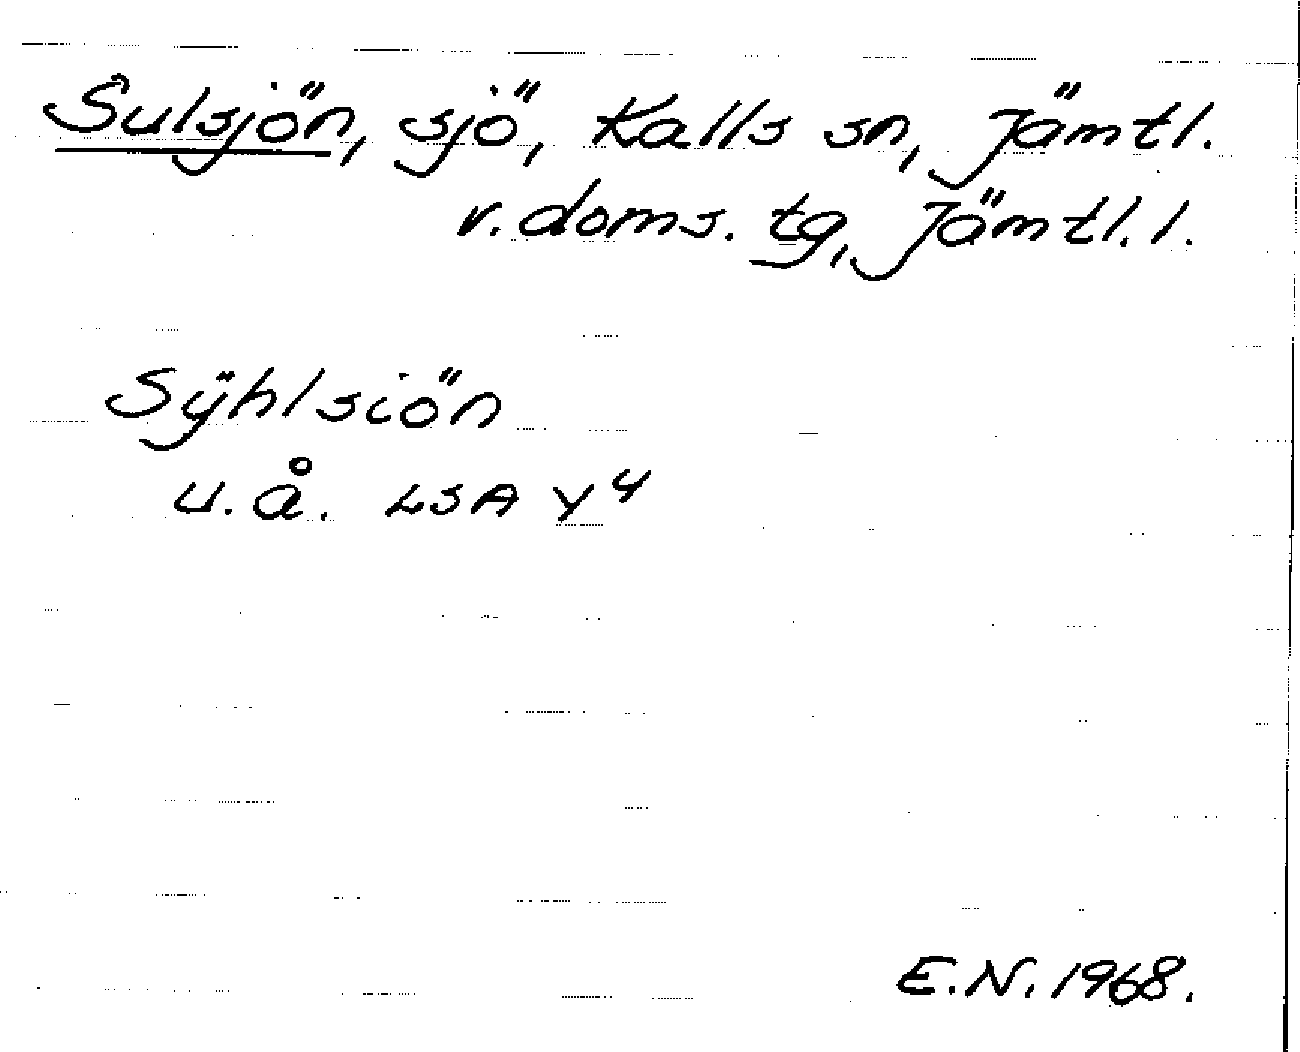 Sulsjön, sjö, Kalls sn, Jämtl.
v. doms. tg, Jämtl. l.
Sÿhlsiön
u. å. LSA Y 4
E.N. 1968.